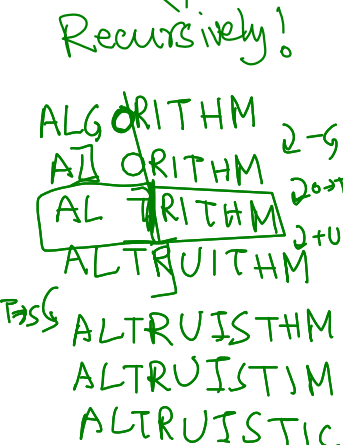 Recursively!
ALGORITHM
AL ORITHM
-G
AL TRITHM
O→T
ALTRUITHM
+U
T→S
ALTRUISTHM
ALTRUISTIM
ALTRUISTIC